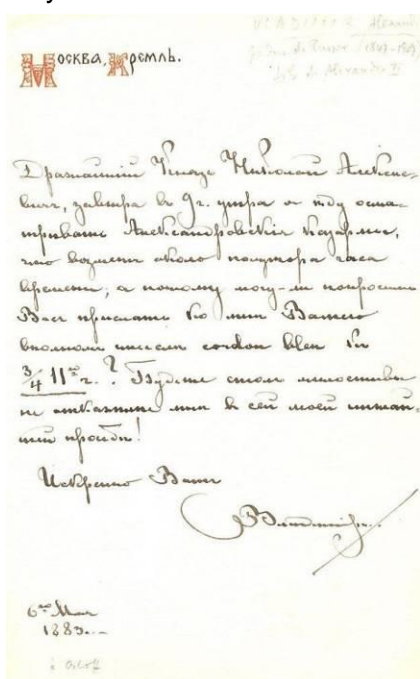 Москва, Кремль.
Князь Николай Алексѣе-
вичъ, завтра въ 9 г. утра я ѣду осма-
тривать Александровскія казармы,
что возметъ около полутора часа
времени, а потому могу-ли попросить
Васъ прислать ко мнѣ Вашего
cordon bleu къ
3/4 11го г.? Будьте столь милостивы
не откажите мнѣ въ сей моей
просьбѣ!
Искренно Вашъ
Владиміръ
6го Мая
1883
à Orloff